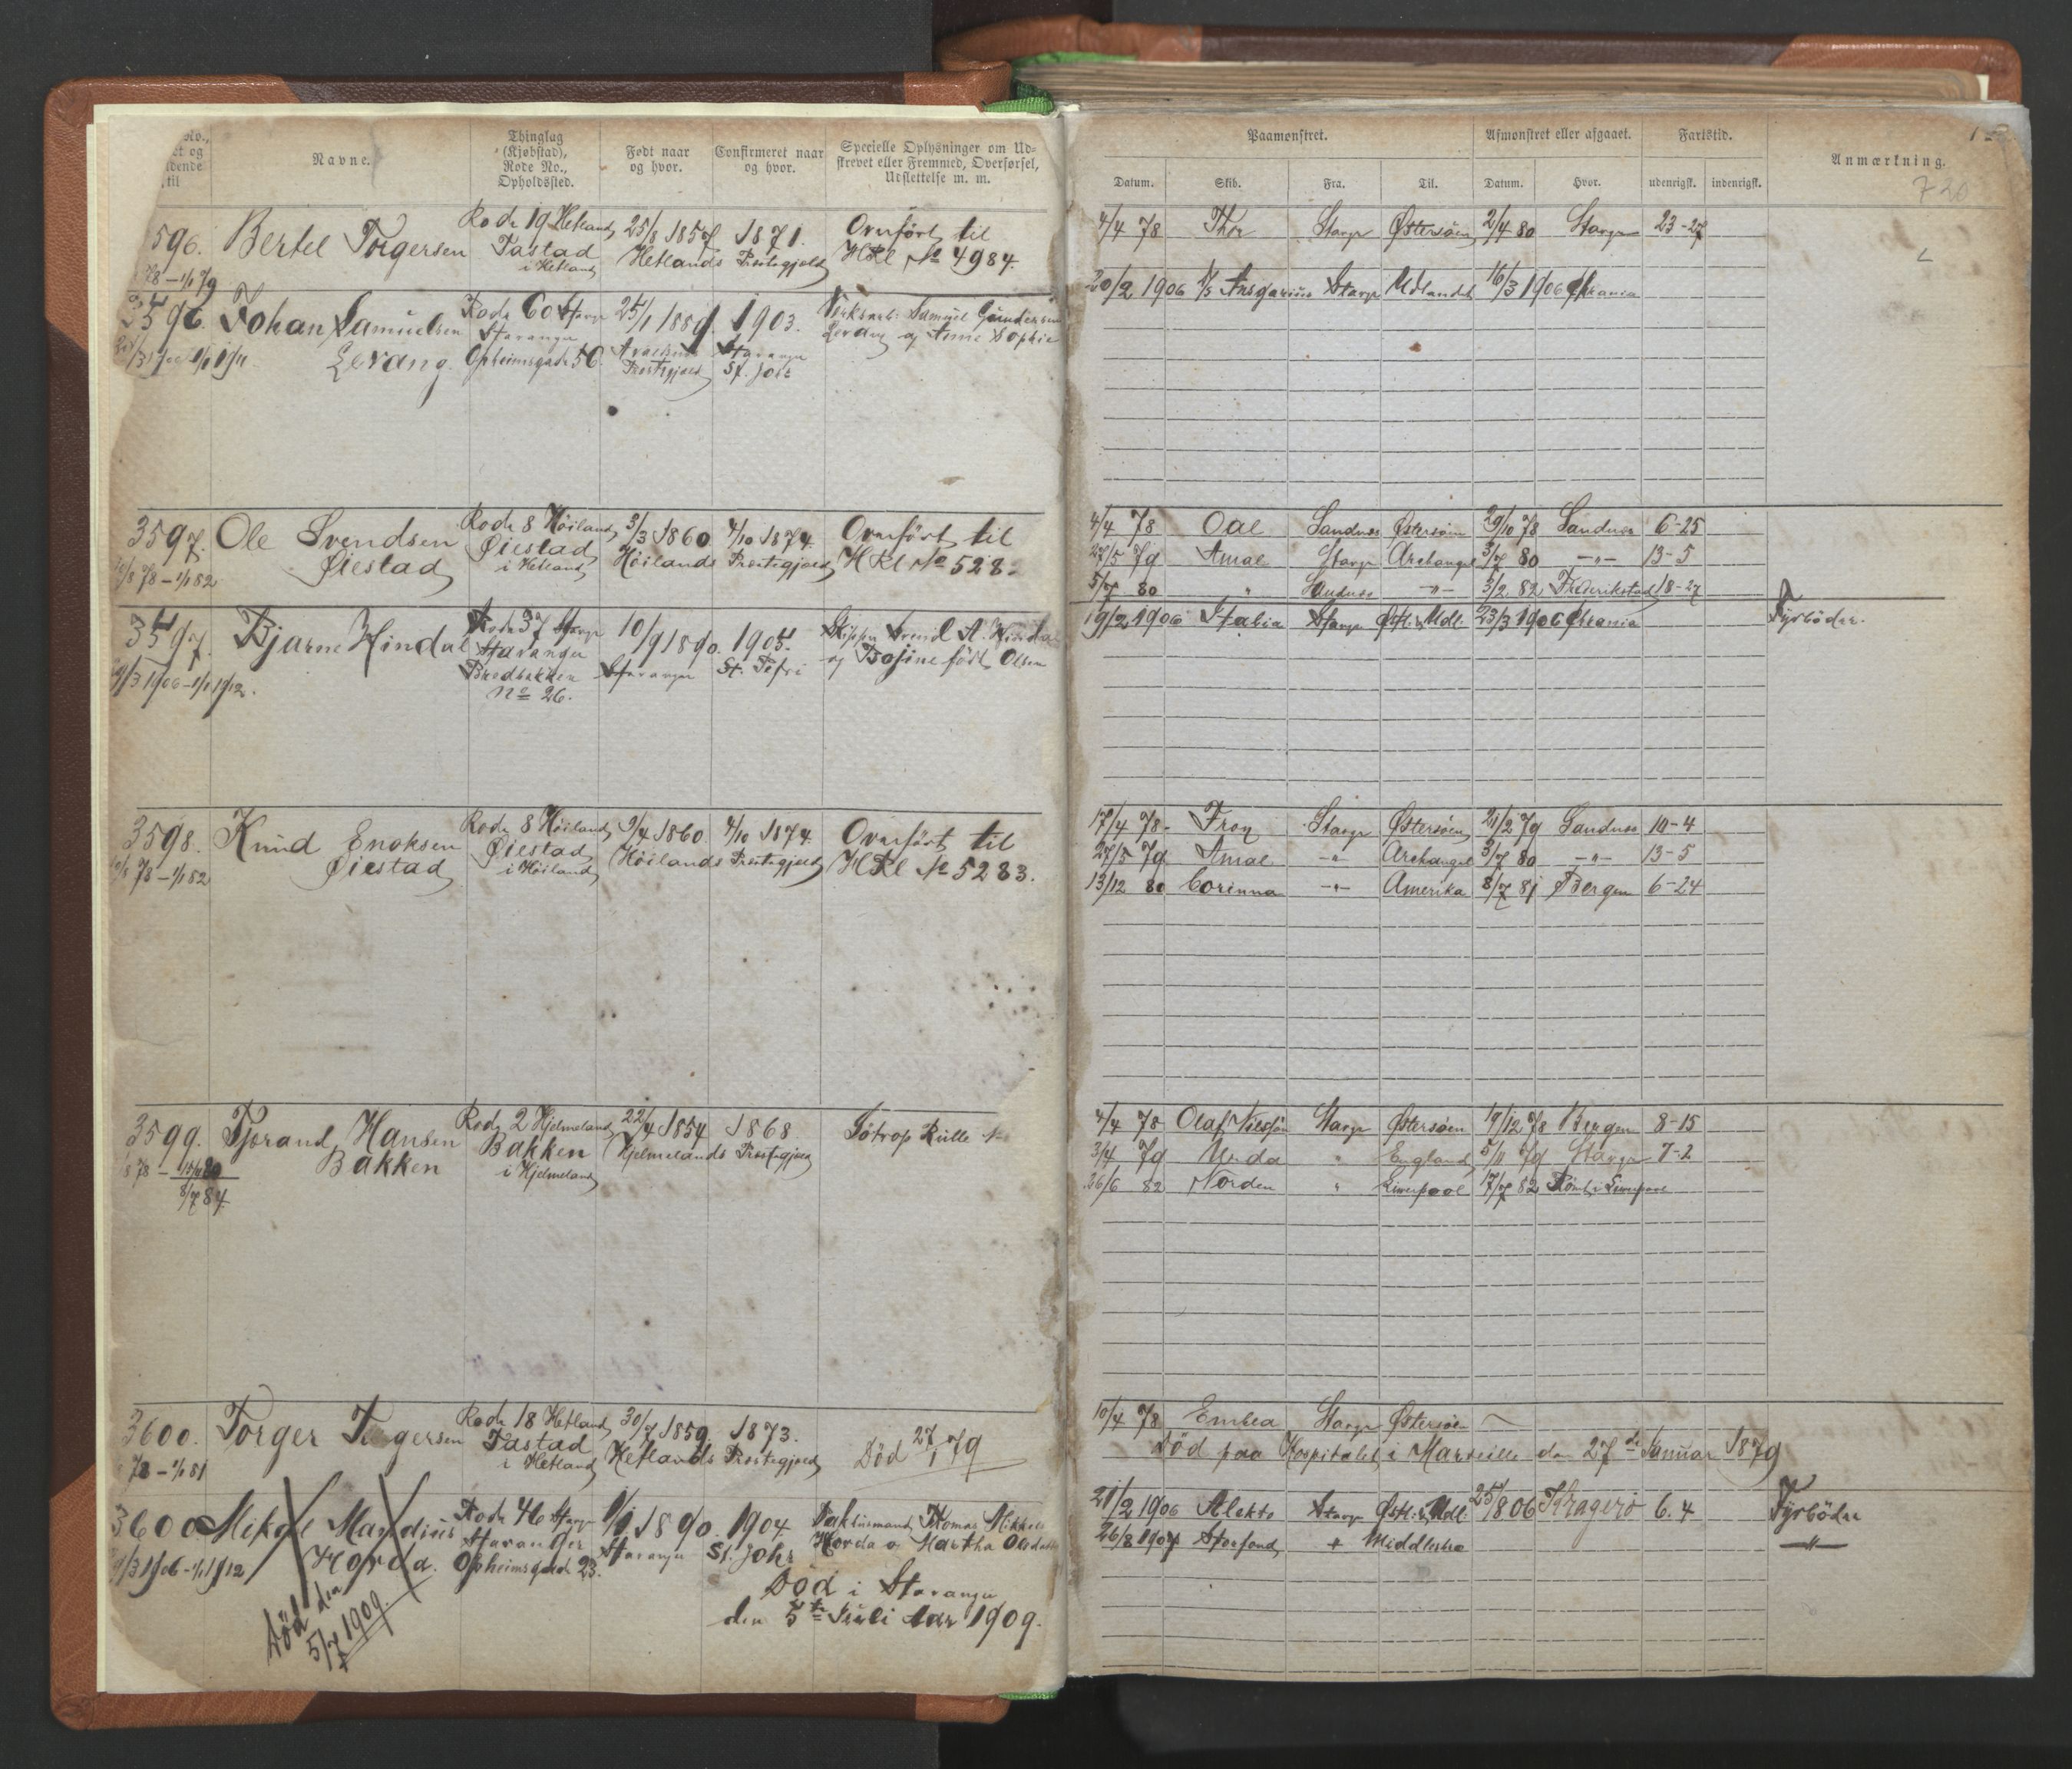 Navne.
Thinglag
(Kjøbstad),
Rode No.,
Opholdssted.
Født naar
og hvor.
Confirmeret naar
og hvor.
Specielle Oplysninger om Ud-
skrevet eller Fremmed, Overførsel,
Udslettelse m. m.
596. Bertel Torgersen
Rode 19 Hetland
Tastad
i Hetland
25/8 1857
Hetlands Præstegjeld
1871.
Overført til
HRl No 4984.
3596. Johan Samuelsen
Levang.
Rode 60 Stavgr
Stavanger
Opheimsgade 56.
25/1 1889.
Præstegjeld
1903.
Stavanger
St. Joh:
Samuel Gundersen
Levang og Anne Sophie
3597. Ole Svendsen
Øiestad
78 – 1/1 82
Rode 8 Høiland
Øiestad
i Hetland
3/3 1860
Høilands Præstegjeld
4/10 1874.
Overført til
HRl No 528
3597. Bjarne Hindal
Rode 37 Stavgr
Stavanger
Bredbakken
No 26.
10/9 1890.
Stavanger
1905.
St. Petri
Skipper Svend A. Hindal
og Bosine født Olsen
3598. Knud Enoksen
Øiestad
78 – 1/1 82
Rode 8 Høiland
Øiestad
i Høiland
9/4 1860
Høilands Præstegjeld
4/10 1874.
Overført til
HRl No 5283.
3599. Tjorand Hansen
Bakken
8/7 84.
Rode 2 Hjelmeland
Bakken
i Hjelmeland
22/4 1854
Hjelmelands Præstegjeld
1868
Søtrop Rulle
3600. Torger Torgersen
78 – 1/1 81
Rode 18 Hetland
Tastad
i Hetland
30/7 1859.
Hetlands Præstegjeld
1873.
Død 27/1 79
3600 Mikal Mandius
Horda.
Død den
5/7 1909.
Rode 46 Stavgr
Stavanger
Opheimsgade 23.
1/1 1890.
Stavanger
1904.
St. Johs
Pakhusmand Thomas Mikkels
Horda og Martha Olsdatter
Død i Stavanger
den 5te Juli Aar 1909.
Paamønstret.
Afmønstret eller afgaaet.
Fartstid.
Anmærkning.
Datum.
Skib.
Fra.
Til.
Datum.
Hvor.
udenrigsk.
indenrigsk.
730
4/4 78 Thor Stavgr Østersøen 2/4 80 Stavgr 23-27
20/2 1906 D/S Ansgarius Stavgr Udlandet 16/3 1906 Chrania
4/4 78 Oal Sandnes Østersøen 29/10 78 Sandnes 6-25
27/5 79 Amal Stavgr Archangel 3/7 80 –"– 13-5
5/7 80 " Sandnes –"– 3/2 82 Frederikstad 18-27
19/2 1906 Italia Stavgr Østl: Udl. 23/3 1906 Chrania Fyrbøder.
17/4 78 Fron Stavgr Østersøen 21/2 79 Sandnes 10-4
27/5 79 Amal –"– Archangel 3/7 80 –"– 13-5
13/12 80 Corinna –"– Amerika 8/7 81 Bergen 6-24
4/4 78 Olaf Nilssøn Stavgr Østersøen 19/12 78 Bergen 8-15
3/4 79 " England 5/11 79 Stavgr 7-2
26/6 82 Norden " Liverpool 17/7 82 Rømt i Liverpool
10/4 78 Emblea Stavgr Østersøen
Død paa Hospitalet i Marseille den 27de Januar 1879
21/2 1906 Alekto Stavgr Østl: Udl. 25/8 06 Kragerø 6.4 Fyrbøder
26/8 1907 Storfond " Middlesbro –"–